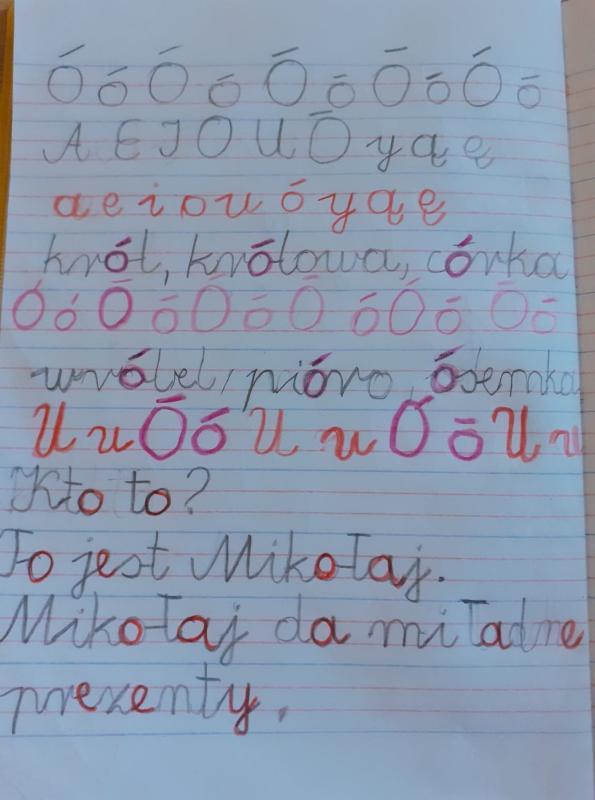 Ó ó Ó ó Ó ó Ó ó Ó ó
A E I O U Ó y ą ę
a e i o u ó y ą ę
król, królowa, córka
Ó ó Ó ó Ó ó Ó ó Ó ó Ó ó
wróbel, pióro, ósemka
U u Ó ó U u Ó ó U u
Kto to?
To jest Mikołaj.
Mikołaj da mi ładne
prezenty.